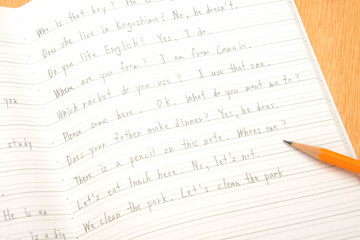 Who is that boy? He is
Does she live in Kagoshima? No, he doesn't.
Do you like English? Yes, I do.
Where are you from? I am from Canada.
Which racket do you use? I use that one.
Please come here. O.K. What do you want me to?
Does your father make dinner? Yes, he does.
There is a pencil on this note. Whose one?
Let's eat lunch here. No, let's not.
We clean the park. Let's clean the park
you
study
He is an
is a big